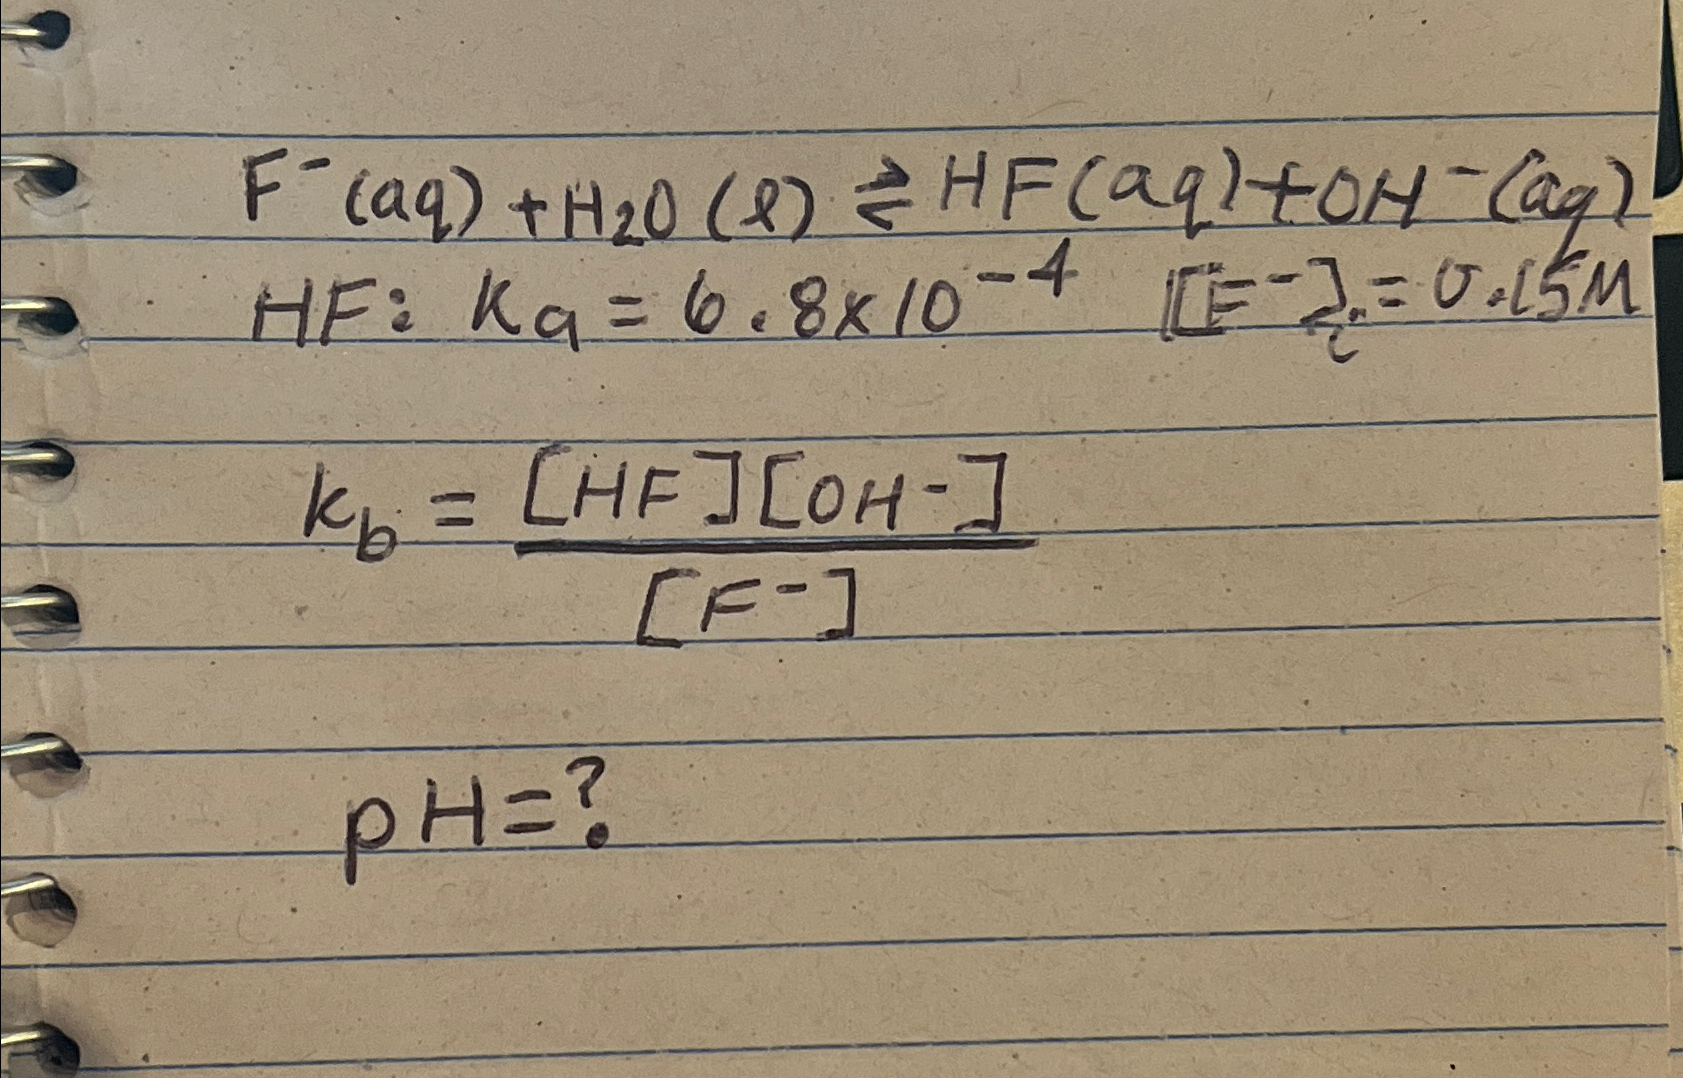 F⁻(aq) + H₂O(l) ⇌ HF(aq) + OH⁻(aq)
HF: Ka = 6.8x10⁻⁴ [F⁻]ᵢ = 0.15M
kb = [HF][OH⁻]
[F⁻]
pH=?